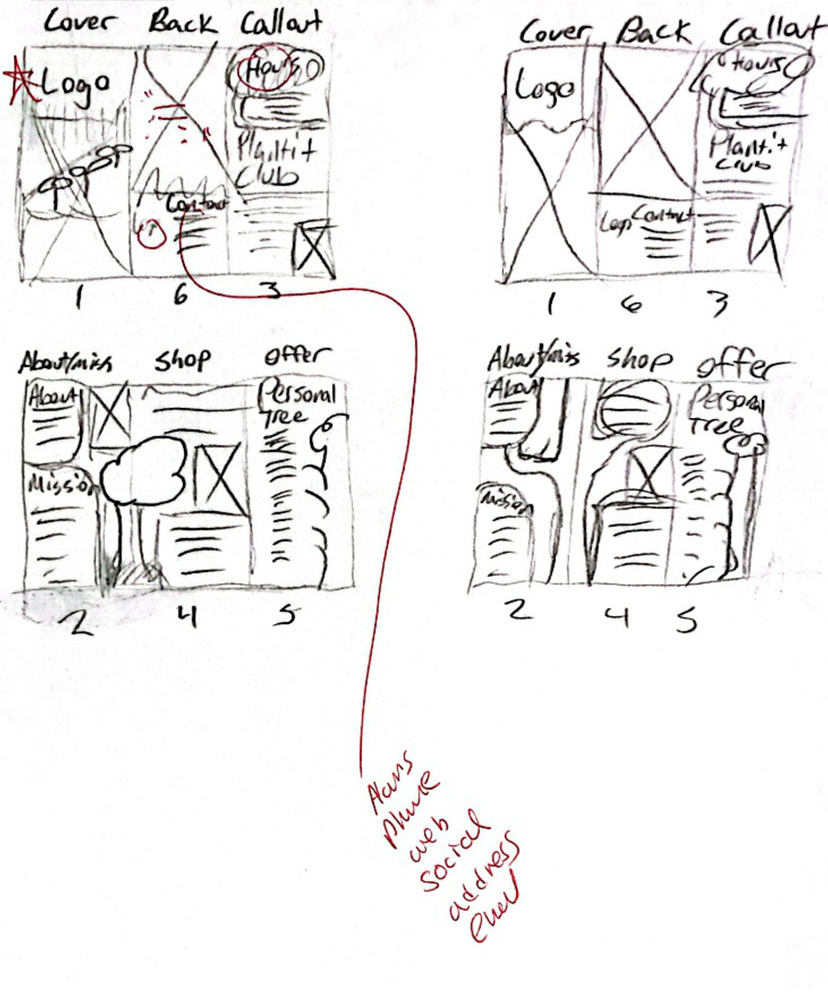 Cover Back Callout
Logo
Hours
Plantit
Club
Contact
1 6 3
Cover Back Callout
Logo
Hours
Plantit
Club
Logo Contact
1 6 3
About/miss shop offer
About
Personal
Tree
Mission
2 4 5
About/miss shop offer
About
Personal
Tree
Mission
2 4 5
Hours
phone
web
social
address